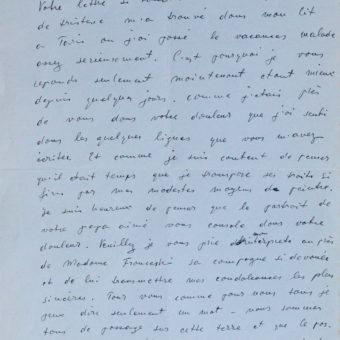 Votre lettre si
de tristesse m'a trouvé dans mon lit
a Turin ou j'ai passé le vacances malade
assez serieusement. C'est pourquoi je vous
reponds seulement maintenant etant mieux
depuis quelques jours. comme j'etais près
de vous dans votre douleur que j'ai senti
dans les quelques lignes que vous m'avez
écrites. Et comme je suis content de penser
qu'il etait temps que je transpose ses traits si
fins par mes modestes moyens de peintre.
Je suis heureux de penser que le portrait de
votre papa aimé vous console dans votre
douleur. Veuillez je vous prie interprete au près
de Madame Franceschi sa compagne si devouée
et de lui transmettre mes condoleances les plus
sincères. Tous vous comme pour nous tous je
peux dire seulement un mot - nous sommes
tous de passage sur cette terre et que le pas.